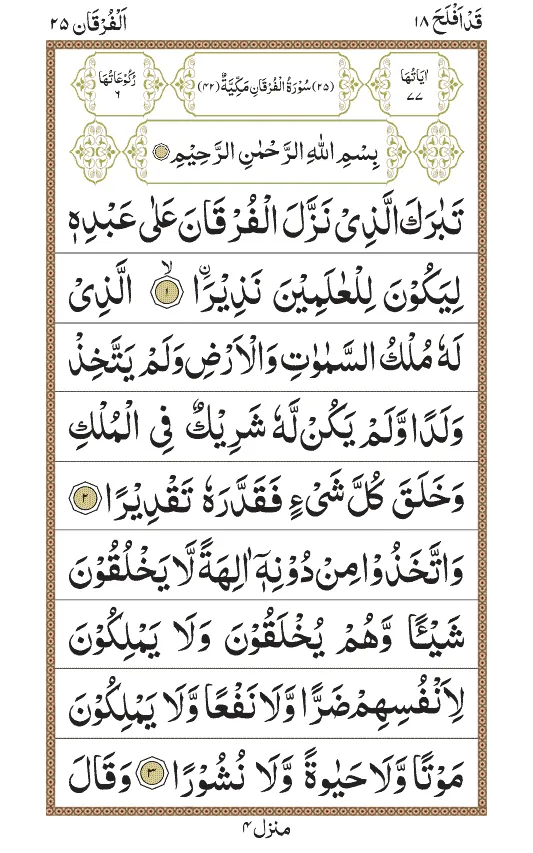 قَدْ اَفْلَحَ ۱۸
اَلْفُرْقَان ۲۵
اٰيَاتُهَا ۷۷
(۲۵) سُوْرَةُ الْفُرْقَانِ مَكِّيَّةٌ (۴۲)
رُكُوْعَاتُهَا ۶
بِسْمِ اللّٰهِ الرَّحْمٰنِ الرَّحِيْمِ
تَبٰرَكَ الَّذِىْ نَزَّلَ الْفُرْقَانَ عَلٰى عَبْدِهٖ
لِيَكُوْنَ لِلْعٰلَمِيْنَ نَذِيْرَاۨ ۙ‏ ﴿۱﴾ الَّذِىْ
لَهٗ مُلْكُ السَّمٰوٰتِ وَالْاَرْضِ وَلَمْ يَتَّخِذْ
وَلَدًا وَّلَمْ يَكُنْ لَّهٗ شَرِيْكٌ فِى الْمُلْكِ
وَخَلَقَ كُلَّ شَىْءٍ فَقَدَّرَهٗ تَقْدِيْرًا ﴿۲﴾
وَاتَّخَذُوْا مِنْ دُوْنِهٖۤ اٰلِهَةً لَّا يَخْلُقُوْنَ
شَيْـًٔا وَّهُمْ يُخْلَقُوْنَ وَلَا يَمْلِكُوْنَ
لِاَنْفُسِهِمْ ضَرًّا وَّلَا نَفْعًا وَّلَا يَمْلِكُوْنَ
مَوْتًا وَّلَا حَيٰوةً وَّلَا نُشُوْرًا ﴿۳﴾ وَقَالَ
منزل ۴